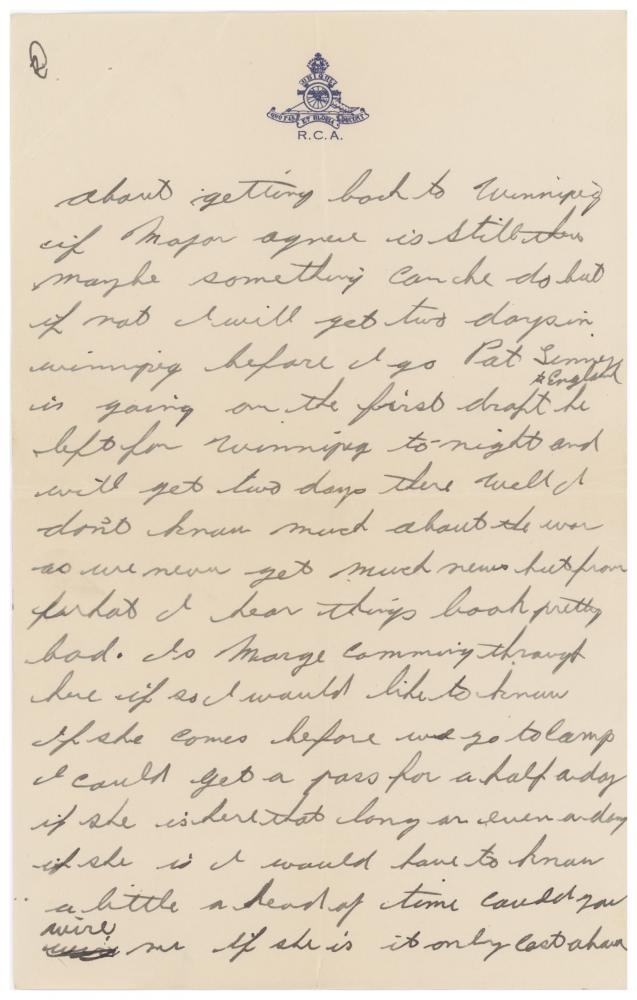 2
UBIQUE
QUO FAS ET GLORIA DUCUNT
R.C.A.
about getting back to Winnipeg
if Major agnew is still there
maybe something can he do but
if not I will get two days in
winnipeg before I go Pat
to England
is going on the first draft he
left for winnipeg to-night and
will get two days there well I
don't know much about the war
as we never get much news but from
what I hear things look pretty
bad. Is Marge comming through
here if so I would like to know
If she comes before we go to camp
I could get a pass for a half a day
if she is here that long or even a day
if she is I would have to know
a little a head of time could you
wire
me If she is it only cost a